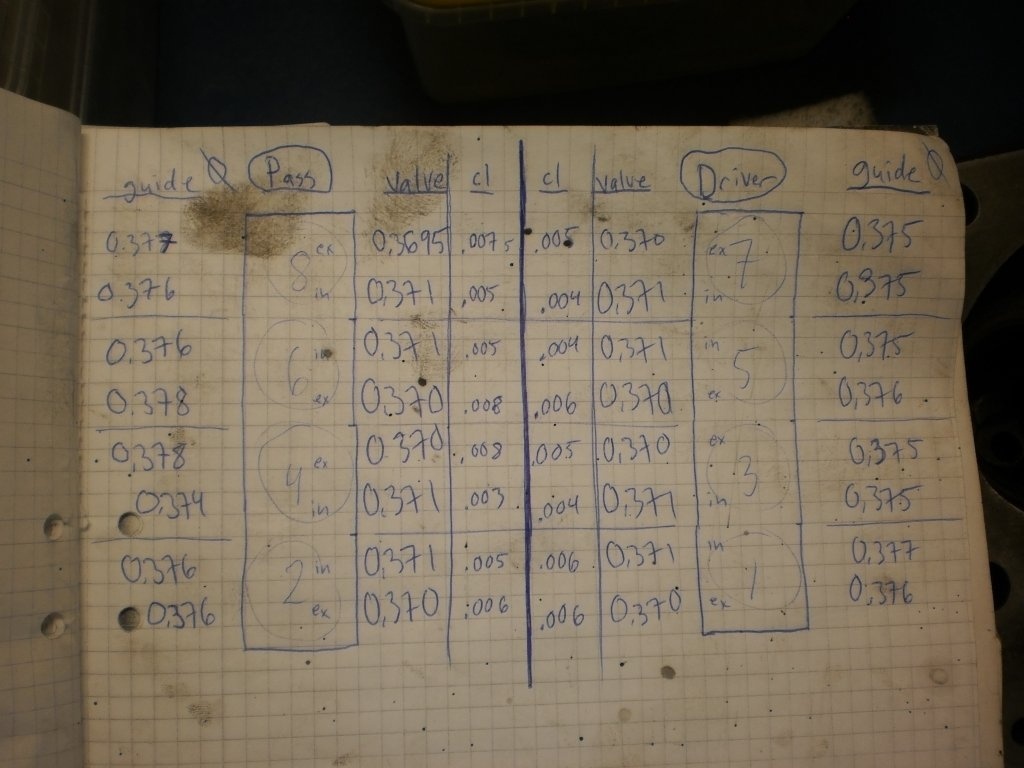 guide Ø Pass valve cl cl valve Driver guide Ø
0.377 8 ex 0.3695 .0075 .005 0.370 ex 7 0.375
0.376 in 0.371 .005 .004 0.371 in 0.375
0.376 6 in 0.371 .005 .004 0.371 in 5 0.375
0.378 ex 0.370 .008 .006 0.370 ex 0.376
0.378 4 ex 0.370 .008 .005 0.370 ex 3 0.375
0.374 in 0.371 .003 .004 0.371 in 0.375
0.376 2 in 0.371 .005 .006 0.371 in 1 0.377
0.376 ex 0.370 .006 .006 0.370 ex 0.376